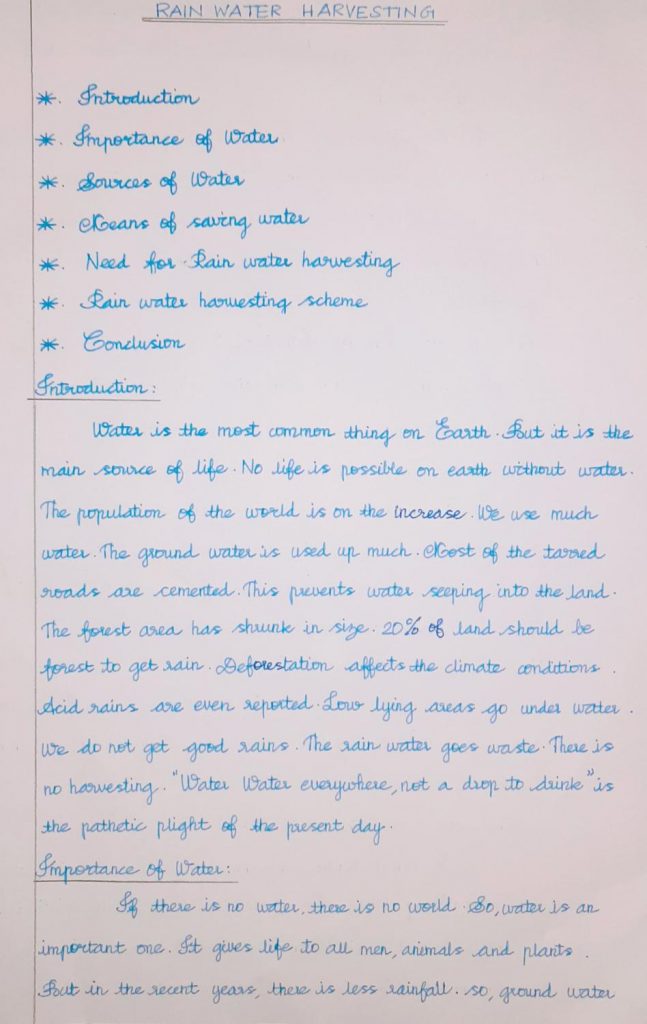 RAIN WATER HARVESTING
*. Introduction
*. Importance of Water
*. Sources of Water
*. Means of saving water
*. Need for Rain water harvesting
*. Rain water harvesting scheme
*. Conclusion
Introduction:
Water is the most common thing on Earth. But it is the
main source of life. No life is possible on earth without water.
The population of the world is on the increase. We use much
water. The ground water is used up much. Most of the tarred
roads are cemented. This prevents water seeping into the land.
The forest area has shrunk in size. 20% of land should be
forest to get rain. Deforestation affects the climate conditions.
Acid rains are even reported. Low lying areas go under water.
We do not get good rains. The rain water goes waste. There is
no harvesting. "Water Water everywhere, not a drop to drink" is
the pathetic plight of the present day.
Importance of Water:
If there is no water, there is no world. So, water is an
important one. It gives life to all men, animals and plants.
But in the recent years, there is less rainfall. so, ground water